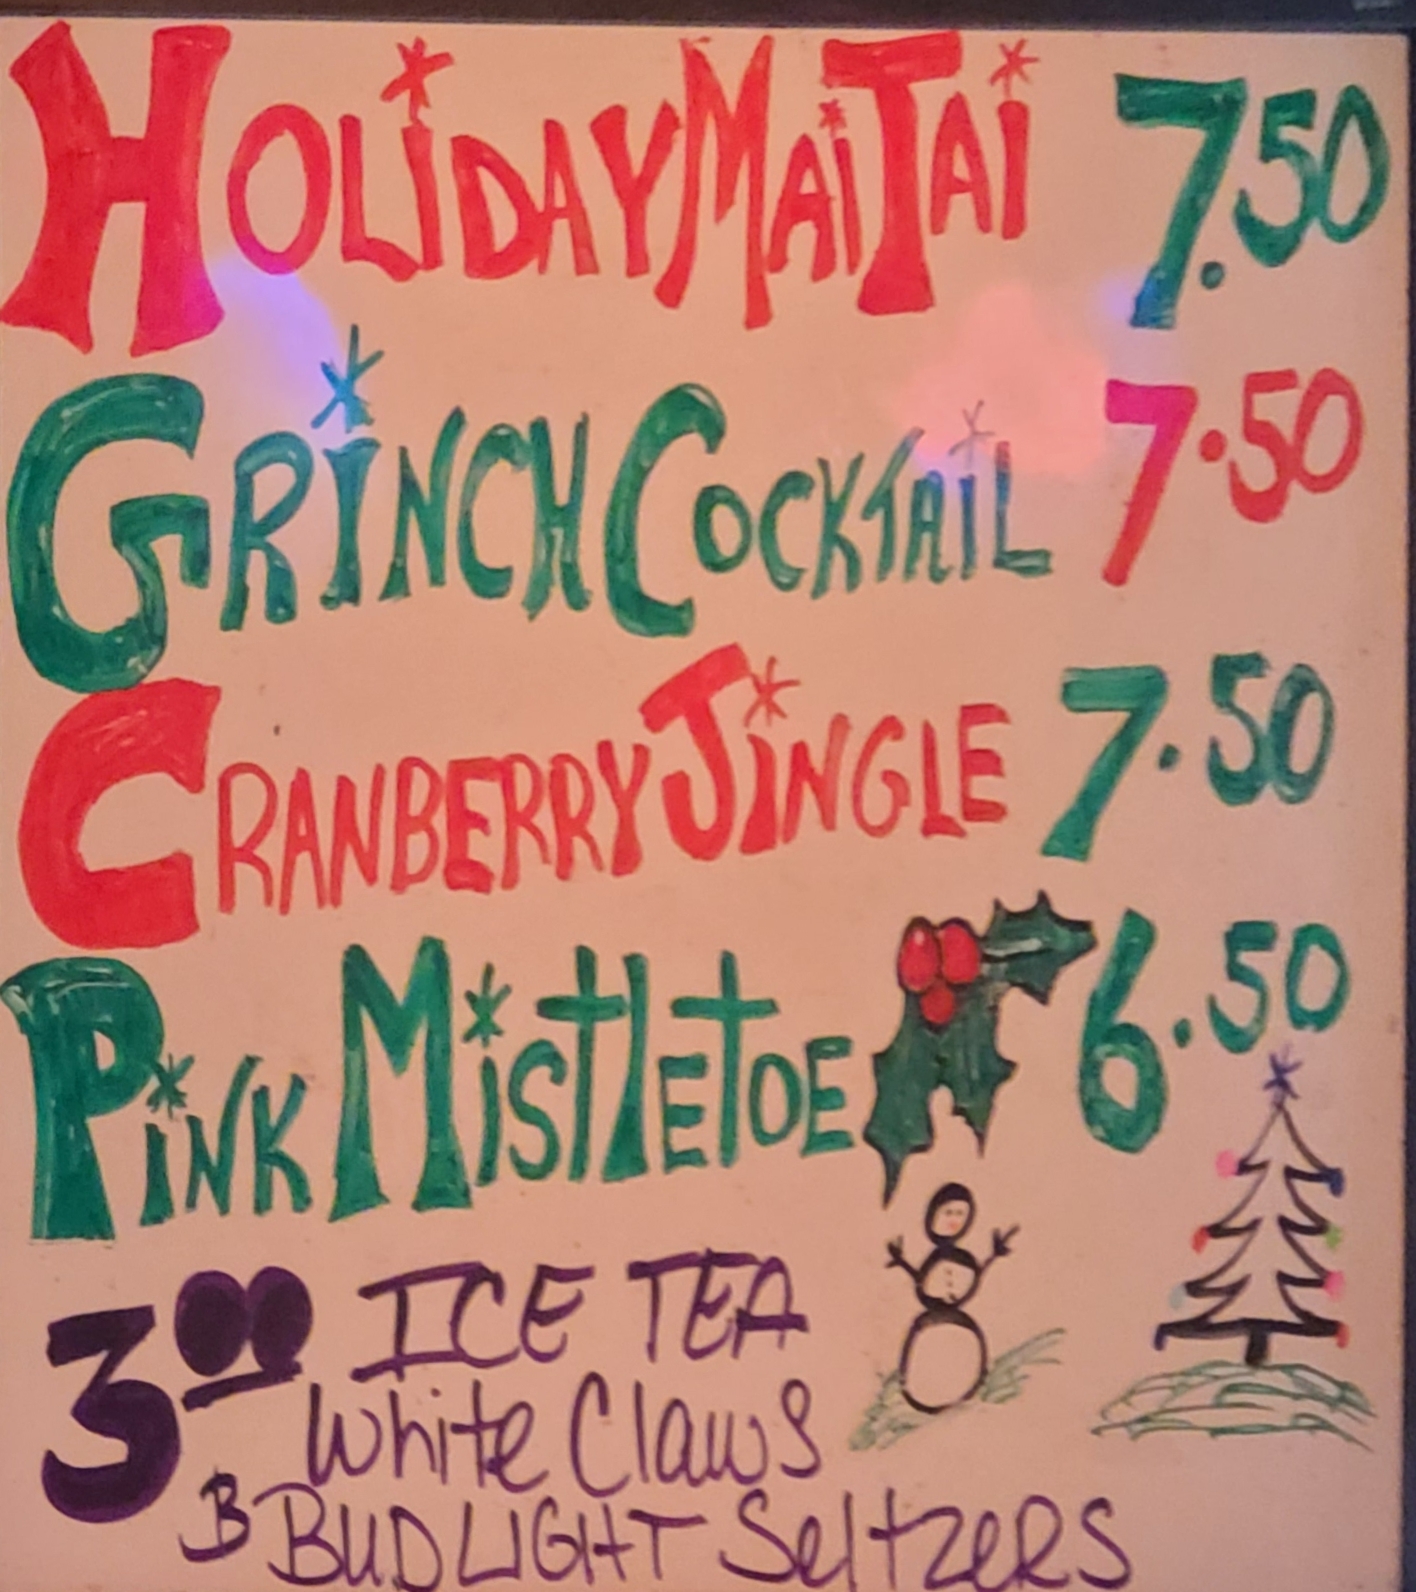 HOLiDAY MAi TAi 7.50
GRiNCH COCKTAiL 7.50
CRANBERRY JiNGLE 7.50
PiNK MistletOE 6.50
3.00 ICE TEA
White Claws
B BUD LIGHT SeltzeRS